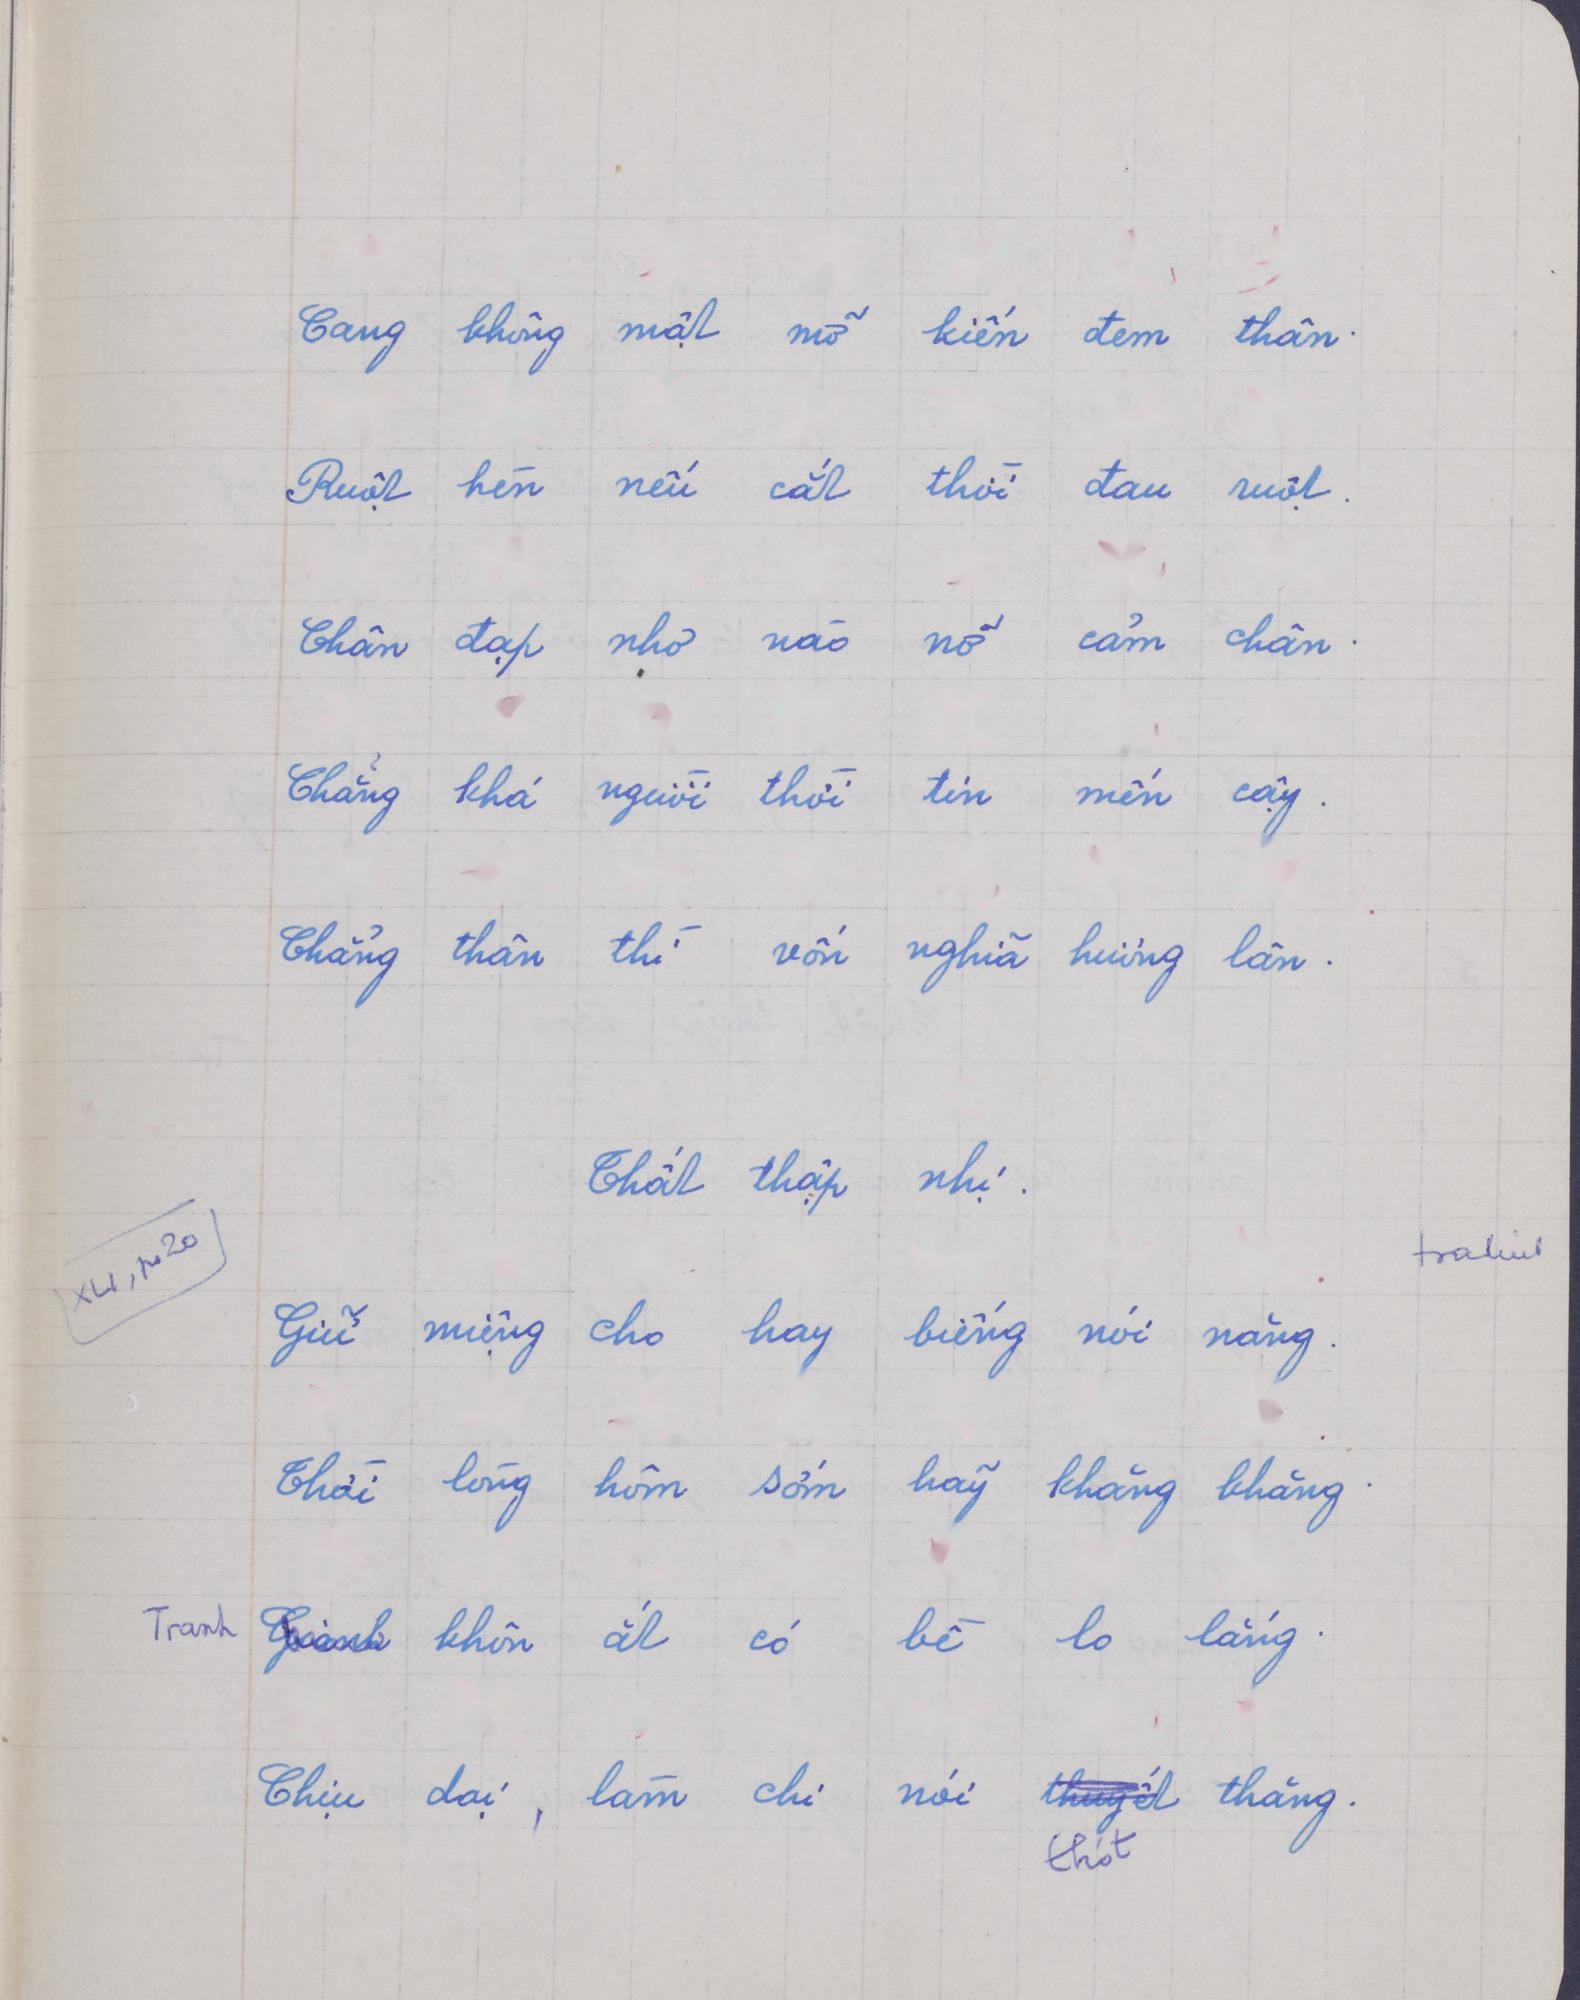 Cang không mật mỡ kiến đem thân.
Ruột hèn nếu cắt thời đau ruột.
Chân đạp nhơ nào nỡ cảm chân.
Chẳng khá người thời tín mến cậy.
Chẳng thân thì vốn nghĩa hương lân.
Thất thập nhị.
traduit
Giữ miệng cho hay biếng nói năng.
Thời lòng hôm sớm hãy khăng khăng.
Tranh khôn ắt có bề lo lắng.
Chịu dại, làm chi nói thuyết thăng.
thót